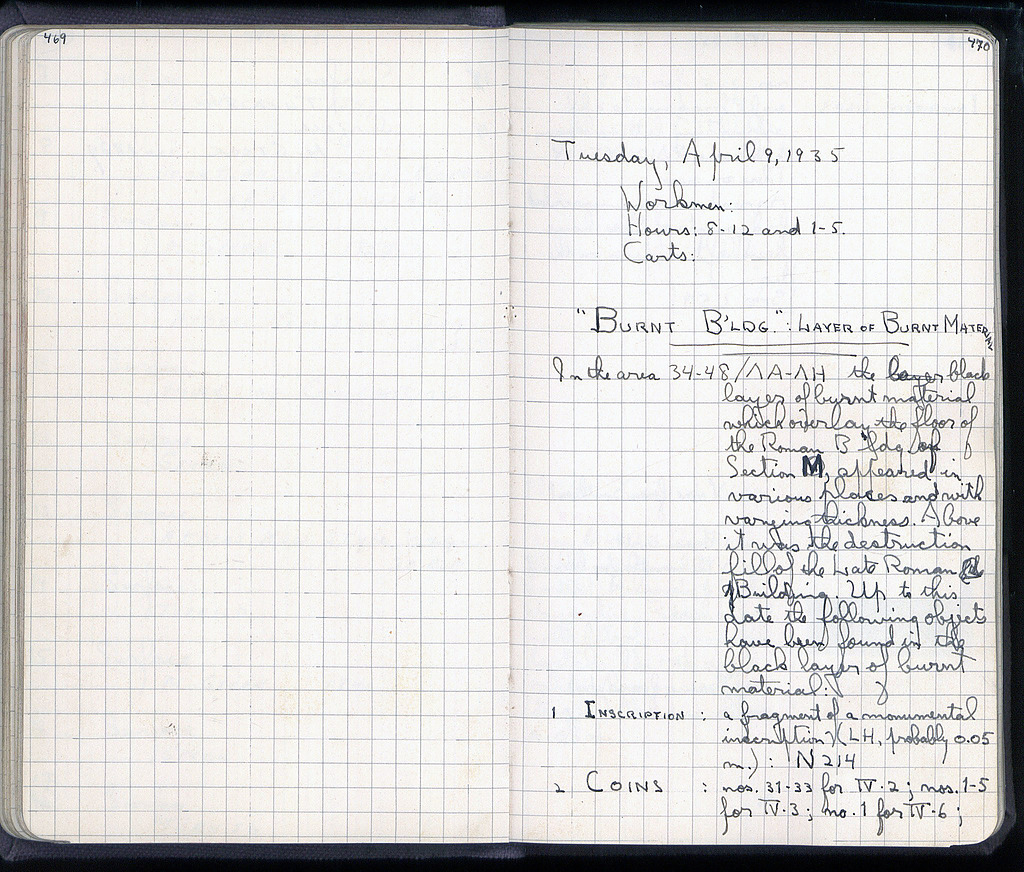 469
470
Tuesday, April 9, 1935
Workmen:
Hours: 8-12 and 1-5.
Carts:
"BURNT B'LDG.": LAYER OF BURNT MATERIAL
In the area 34-48/ΛΑ-ΛΗ the black
layer of burnt material
which overlay the floor of
the Roman B'ldg of
Section M, appeared in
various places and with
varying thickness. Above
it was the destruction
fill of the Late Roman
Building. Up to this
date the following objects
have been found in the
black layer of burnt
material:
1 INSCRIPTION : a fragment of a monumental
inscription (LH, probably 0.05
m.) : N 214
2 COINS : nos. 31-33 for IV-2; nos. 1-5
for IV-3; no. 1 for IV-6;